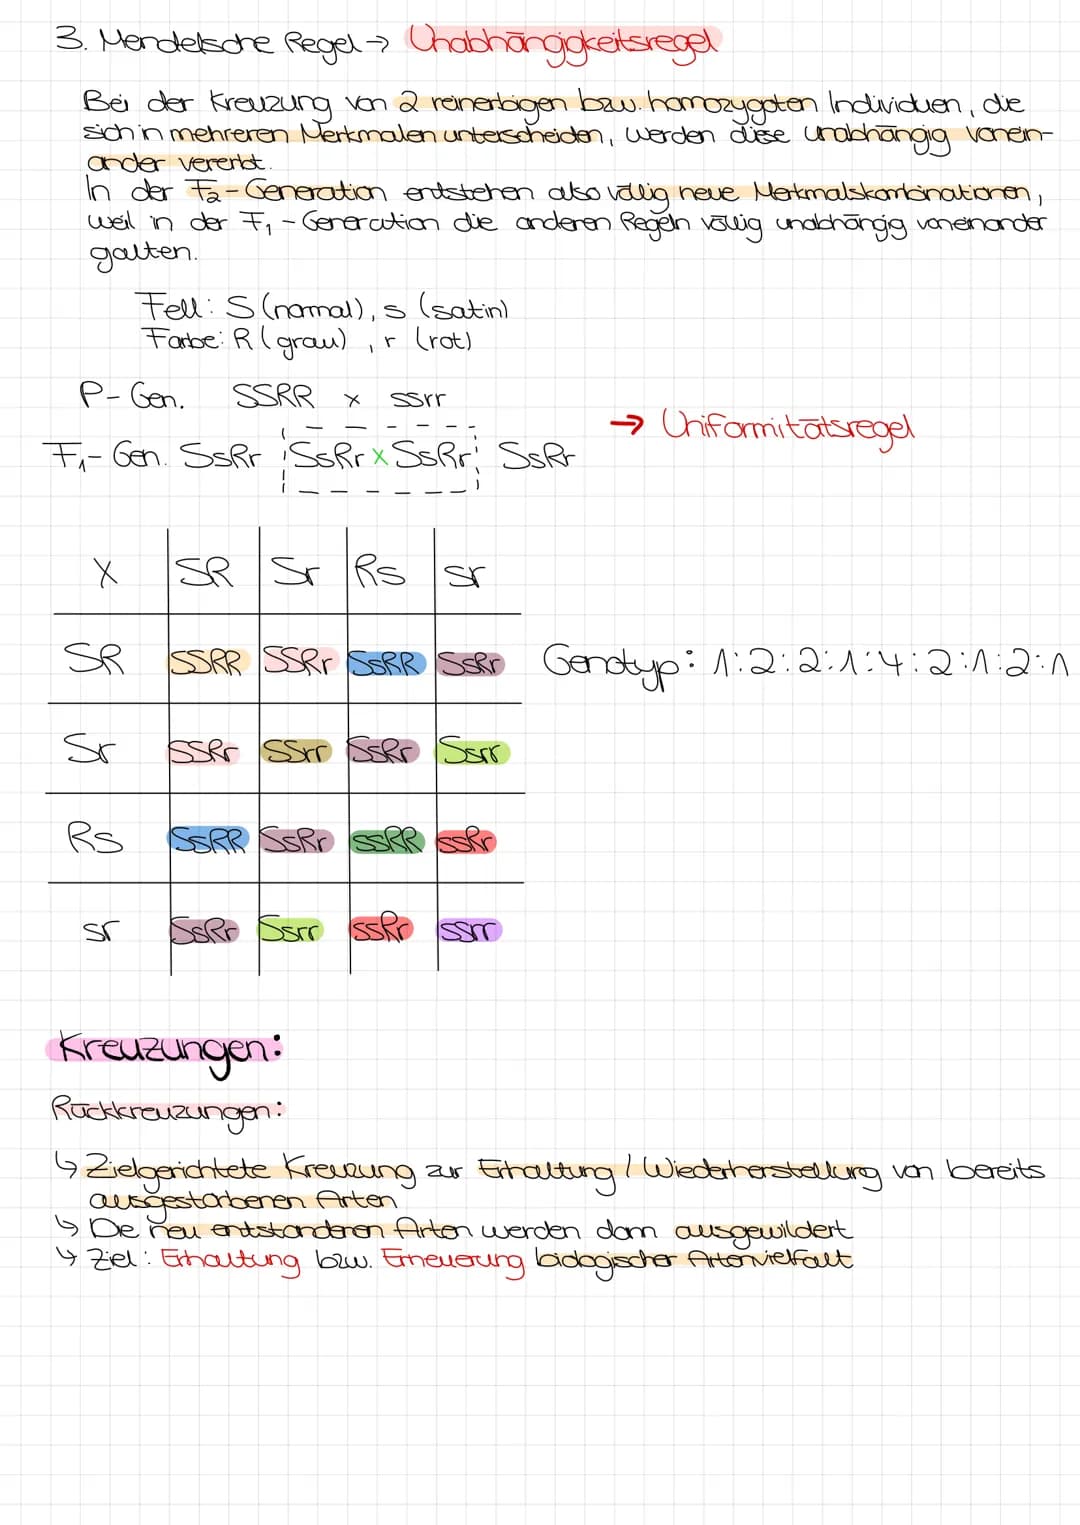 3. Mendelsche Regel → Unabhängigkeitsregel
Bei der Kreuzung von 2 reinerbigen bzw. homozygoten Individuen, die
sich in mehreren Merkmalen unterscheiden, werden diese unabhängig vonein-
ander vererbt.
In der F₂-Generation entstehen also völlig neue Merkmalskombinationen,
weil in der F₁-Generation die anderen Regeln völlig unabhängig voneinander
galten.
Fell: S (normal), s (satin)
Farbe: R (grau), r (rot)
P-Gen. SSRR x ssrr
→ Uniformitätsregel
F₁-Gen. SsRr SsRr x SsRr SsRr
X SR Sr Rs sr
SR SSRR SSRr SsRR SsRr Genotyp: 1:2:2:1:4:2:1:2:1
Sr SSRr SSrr SsRr Ssrr
Rs SsRR SsRr ssRR ssRr
sr SsRr Ssrr ssRr ssrr
Kreuzungen:
Rückkreuzungen:
↳ Zielgerichtete Kreuzung zur Erhaltung / Wiederherstellung von bereits
ausgestorbenen Arten
↳ Die neu entstandenen Arten werden dann ausgewildert
↳ Ziel: Erhaltung bzw. Erneuerung biologischer Artenvielfalt